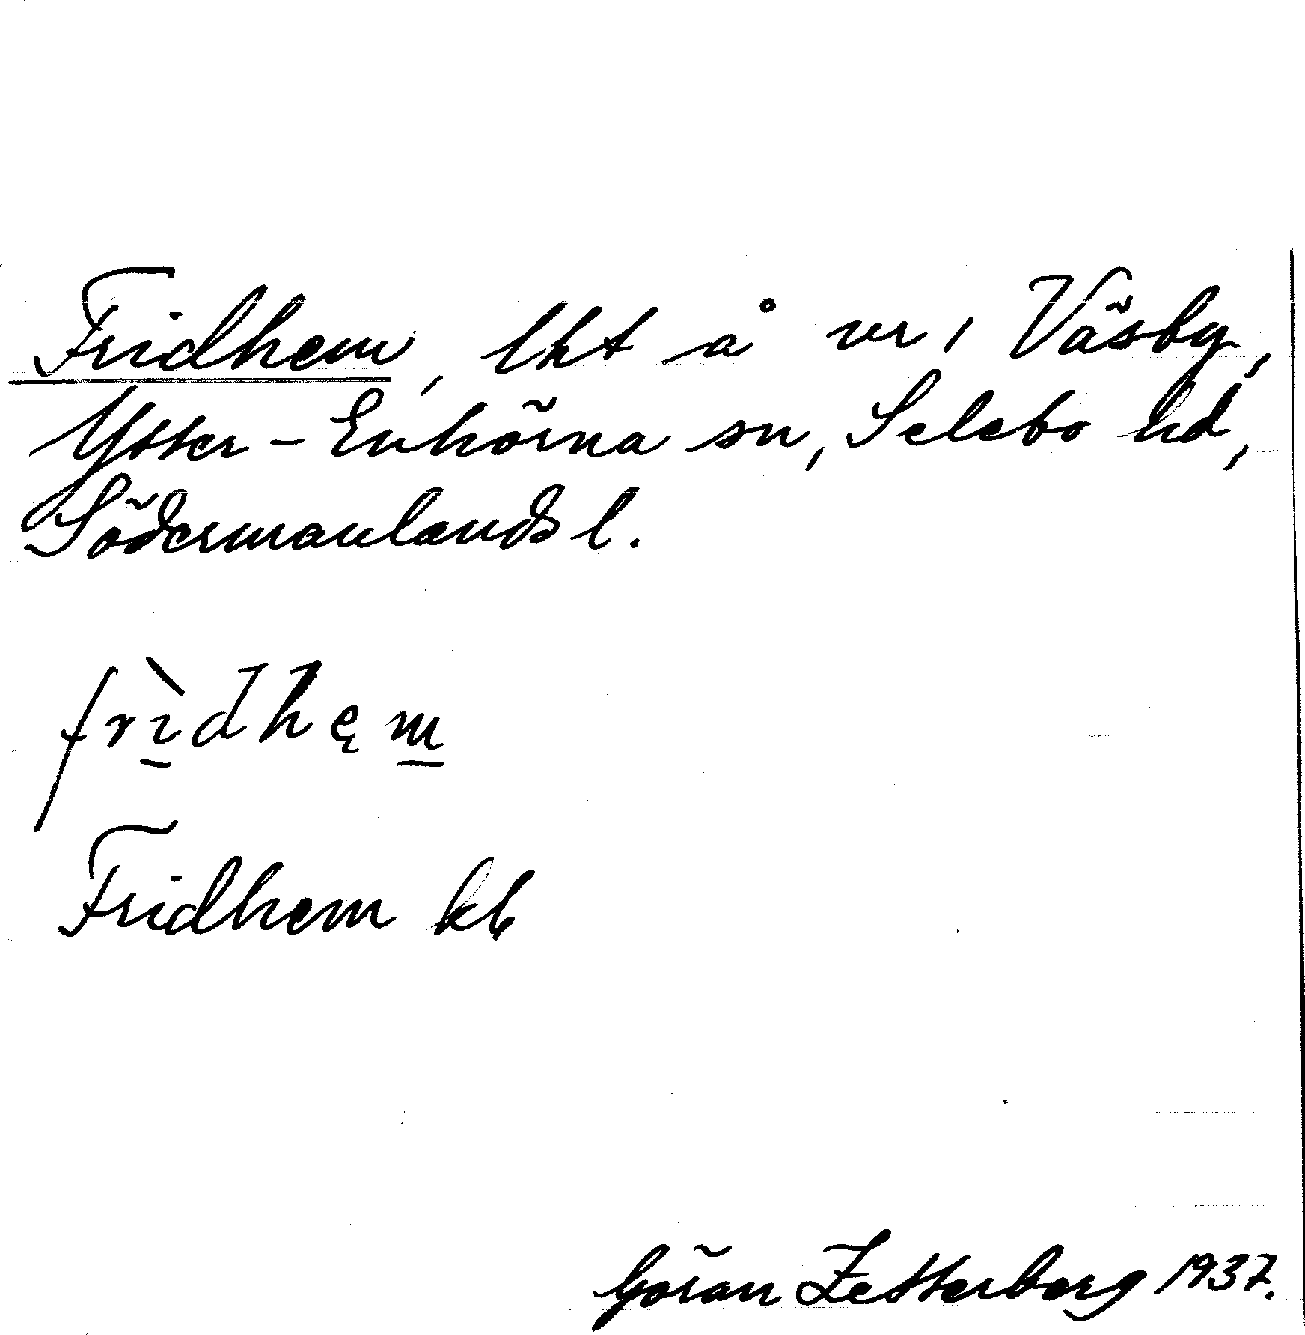 Fridhem, lht å vr, Väsby,
Ytter-Enhörna sn, Selebo hd,
Södermanlands l.
frìdhęm
Fridhem kb
Göran Zetterberg 1937.